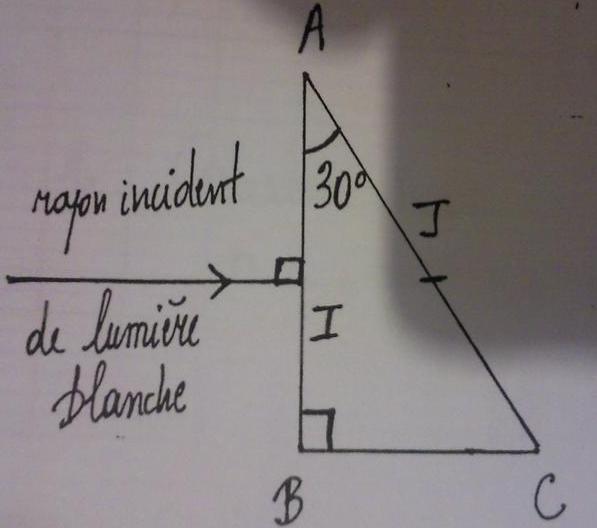 A
30°
rayon incident
J
I
de lumière
blanche
B
C